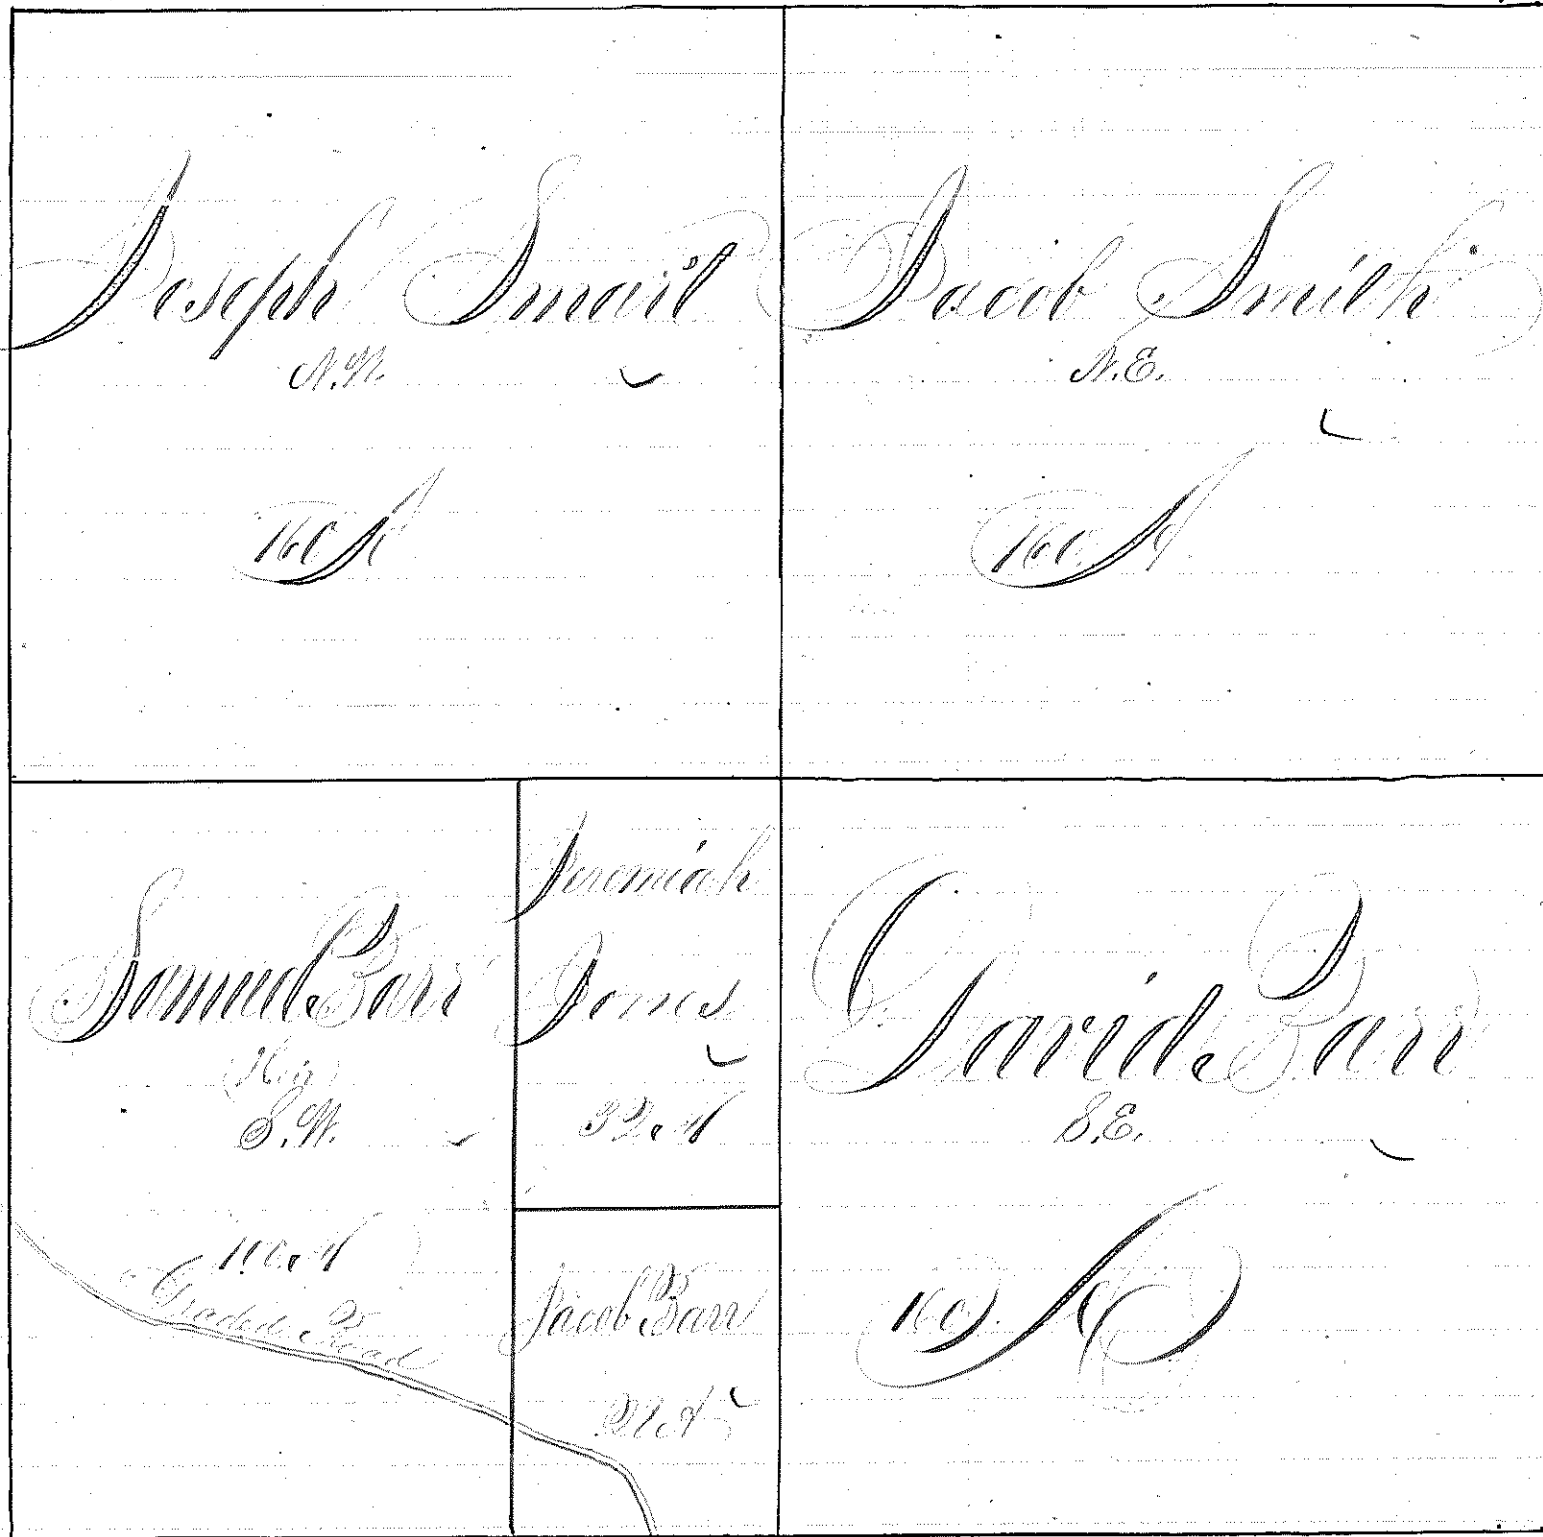 Joseph Smail
N.W.
160 A
Jacob Smith
N.E.
160 A
Samuel Barr
S.W.
Graded Road
Jeremiah
Jones
32 A
Jacob Barr
David Barr
S.E.
160 A